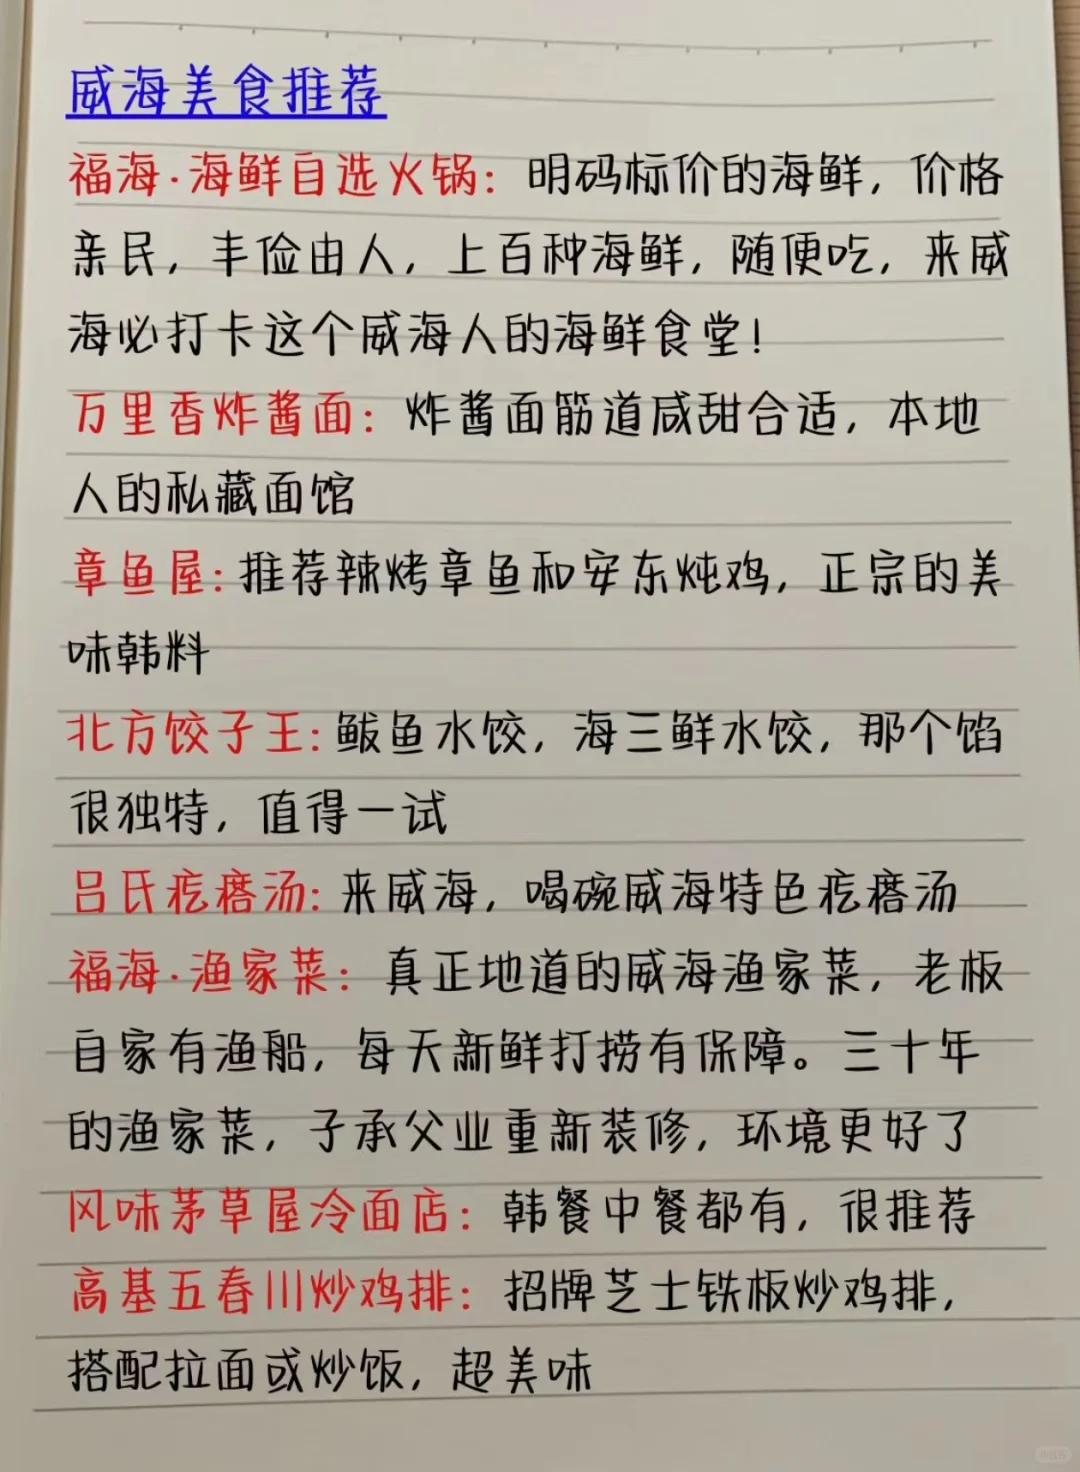 威海美食推荐
福海·海鲜自选火锅：明码标价的海鲜，价格
亲民，丰俭由人，上百种海鲜，随便吃，来威
海必打卡这个威海人的海鲜食堂！
万里香炸酱面：炸酱面筋道咸甜合适，本地
人的私藏面馆
章鱼屋：推荐辣烤章鱼和安东炖鸡，正宗的美
味韩料
北方饺子王：鲅鱼水饺，海三鲜水饺，那个馅
很独特，值得一试
吕氏疙瘩汤：来威海，喝碗威海特色疙瘩汤
福海·渔家菜：真正地道的威海渔家菜，老板
自家有渔船，每天新鲜打捞有保障。三十年
的渔家菜，子承父业重新装修，环境更好了
风味茅草屋冷面店：韩餐中餐都有，很推荐
高基五春川炒鸡排：招牌芝士铁板炒鸡排，
搭配拉面或炒饭，超美味